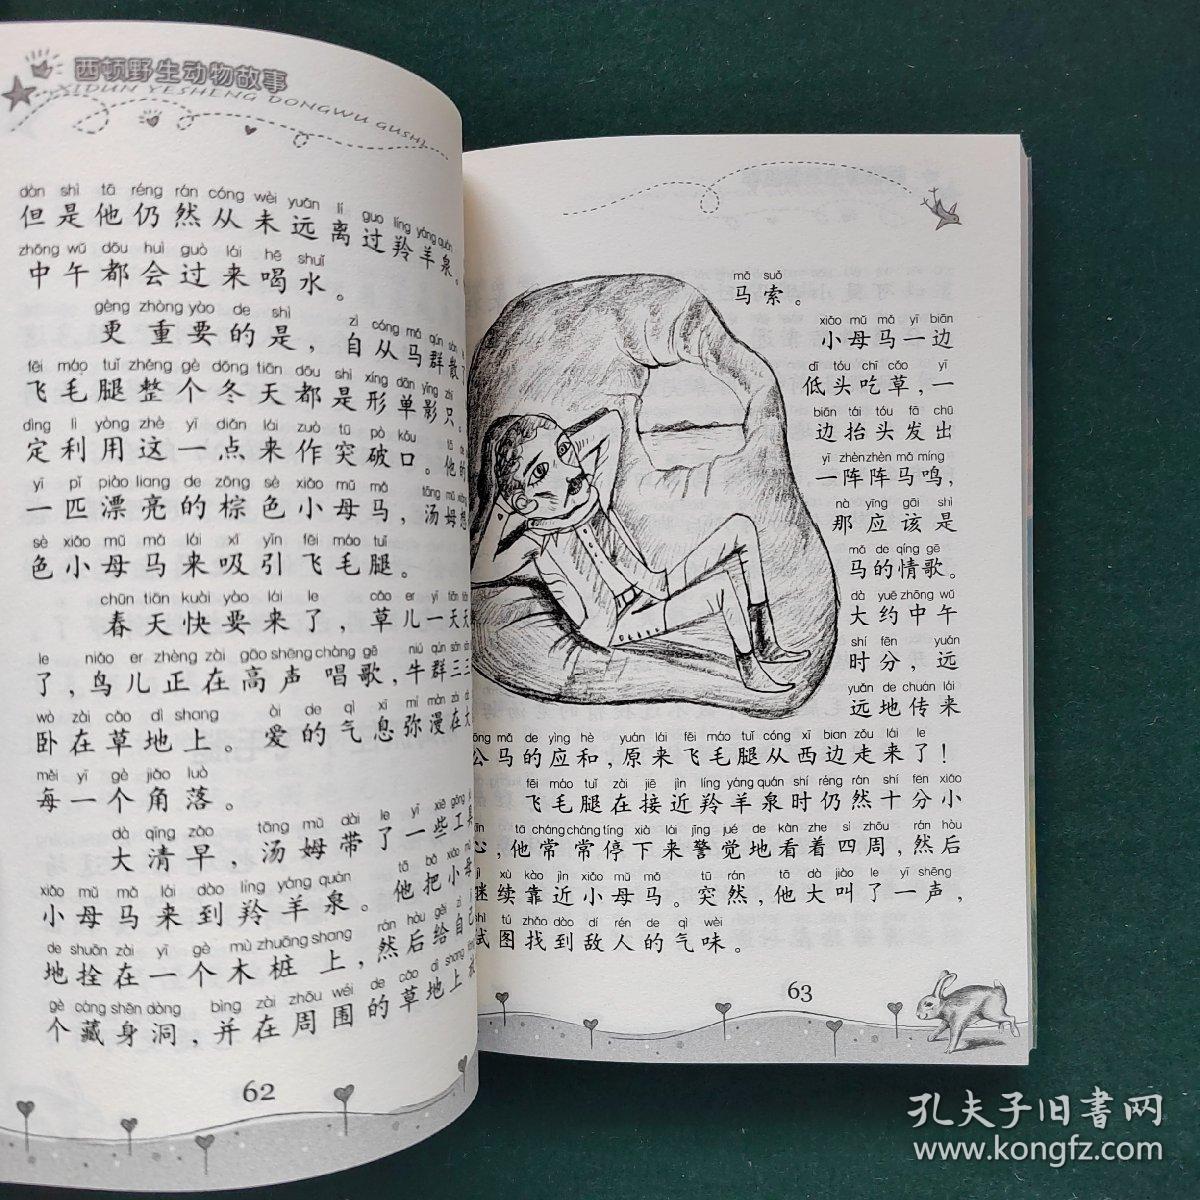 西顿野生动物故事
XIDUN YESHENG DONGWU GUSHI
dàn shì tā réng rán cóng wèi yuǎn lí guo líng yáng quán
但是他仍然从未远离过羚羊泉。
zhōng wǔ dōu huì guò lái hē shuǐ
中午都会过来喝水。
gèng zhòng yào de shì zì cóng mǎ qún sàn
更重要的是，自从马群散了
fēi máo tuǐ zhěng gè dōng tiān dōu shì xíng dān yǐng zhī
飞毛腿整个冬天都是形单影只。
dìng lì yòng zhè yī diǎn lái zuò tū pò kǒu tā
定利用这一点来作突破口。他的
yī pǐ piào liang de zōng sè xiǎo mǔ mǎ tāng mǔ xiǎng
一匹漂亮的棕色小母马，汤姆想
sè xiǎo mǔ mǎ lái xī yǐn fēi máo tuǐ
色小母马来吸引飞毛腿。
chūn tiān kuài yào lái le cǎo er yī tiān tiān
春天快要来了，草儿一天天
le niǎo er zhèng zài gāo shēng chàng gē niú qún sān sān
了，鸟儿正在高声唱歌，牛群三三
wò zài cǎo dì shang ài de qì xī mí màn zài dà
卧在草地上。爱的气息弥漫在大
měi yī gè jiǎo luò
每一个角落。
dà qīng zǎo tāng mǔ dài le yī xiē gōng jù
大清早，汤姆带了一些工具
xiǎo mǔ mǎ lái dào líng yáng quán tā bǎ xiǎo mǔ
小母马来到羚羊泉。他把小母
de shuān zài yī gè mù zhuāng shang rán hòu gěi zì jǐ
地拴在一个木桩上，然后给自己
gè cáng shēn dòng bìng zài zhōu wéi de cǎo dì shang
个藏身洞，并在周围的草地上
62
mǎ suǒ
马索。
xiǎo mǔ mǎ yī biān
小母马一边
dī tóu chī cǎo yī
低头吃草，一
biān tái tóu fā chū
边抬头发出
yī zhèn zhèn mǎ míng
一阵阵马鸣，
nà yīng gāi shì
那应该是
mǎ de qíng gē
马的情歌。
dà yuē zhōng wǔ
大约中午
shí fēn yuǎn
时分，远
yuǎn de chuán lái
远地传来
gōng mǎ de yìng hè yuán lái fēi máo tuǐ cóng xī bian zǒu lái le
公马的应和，原来飞毛腿从西边走来了！
fēi máo tuǐ zài jiē jìn líng yáng quán shí réng rán shí fēn xiǎo
飞毛腿在接近羚羊泉时仍然十分小
xīn tā cháng cháng tíng xià lái jǐng jué de kàn zhe sì zhōu rán hòu
心，他常常停下来警觉地看着四周，然后
jì xù kào jìn xiǎo mǔ mǎ tū rán tā dà jiào le yī shēng
继续靠近小母马。突然，他大叫了一声，
shì tú zhǎo dào dí rén de qì wèi
试图找到敌人的气味。
63
孔夫子旧书网
www.kongfz.com